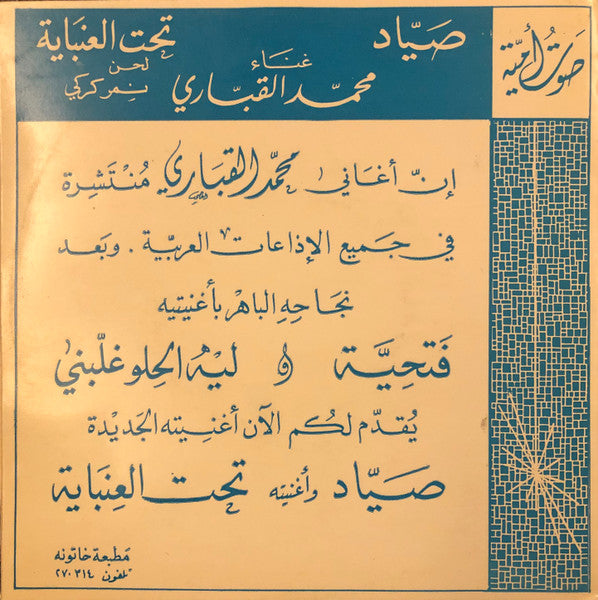 صوت أمية
صيّاد
تحت العنباية
غناء
لحن
محمّد القبّاري
نمر كركي
إنّ أغاني محمّد القبّاري مُنْتَشِرة
في جميع الإذاعات العربيّة . وبَعد
نجَاحِهِ الباهْر بأغنيتيه
فَتحِيَّة و ليْهْ الحِلو غلّبني
يُقدّم لكُم الآن أغنيته الجَديْدة
صَيَّاد وأغنيته تحْت العِنباية
مَطبعة خاتونه
تلفون ٢٧٠٣١٤